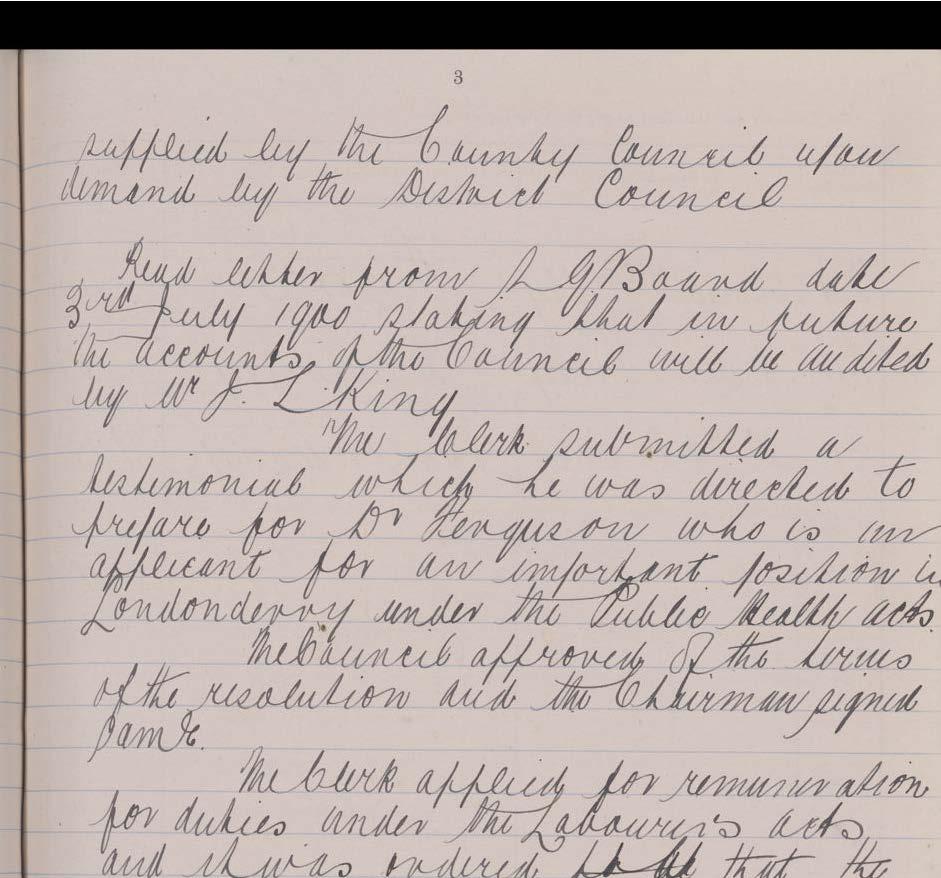 3
supplied by the County Council upon
demand by the District Council
Read letter from L G Board date
3rd July 1900 stating that in future
the accounts of the Council will be audited
by Mr J. L. King
The Clerk submitted a
testimonial which he was directed to
prepare for Dr Ferguson who is an
applicant for an important position in
Londonderry under the Public Health acts.
The Council approved of the terms
of the resolution and the Chairman signed
same.
The Clerk applied for remuneration
for duties under the Labourers acts
and it was ordered that the